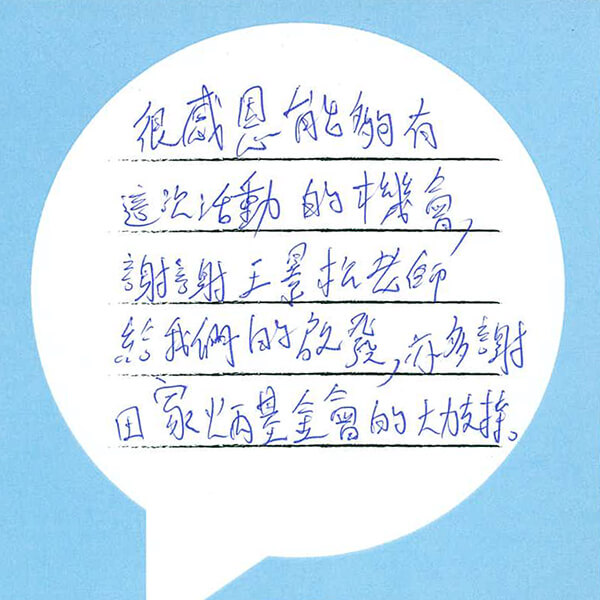 很感恩能夠有
這次活動的機會,
謝謝王景松老師
給我們的啟發,亦多謝
田家炳基金會的大力支持。